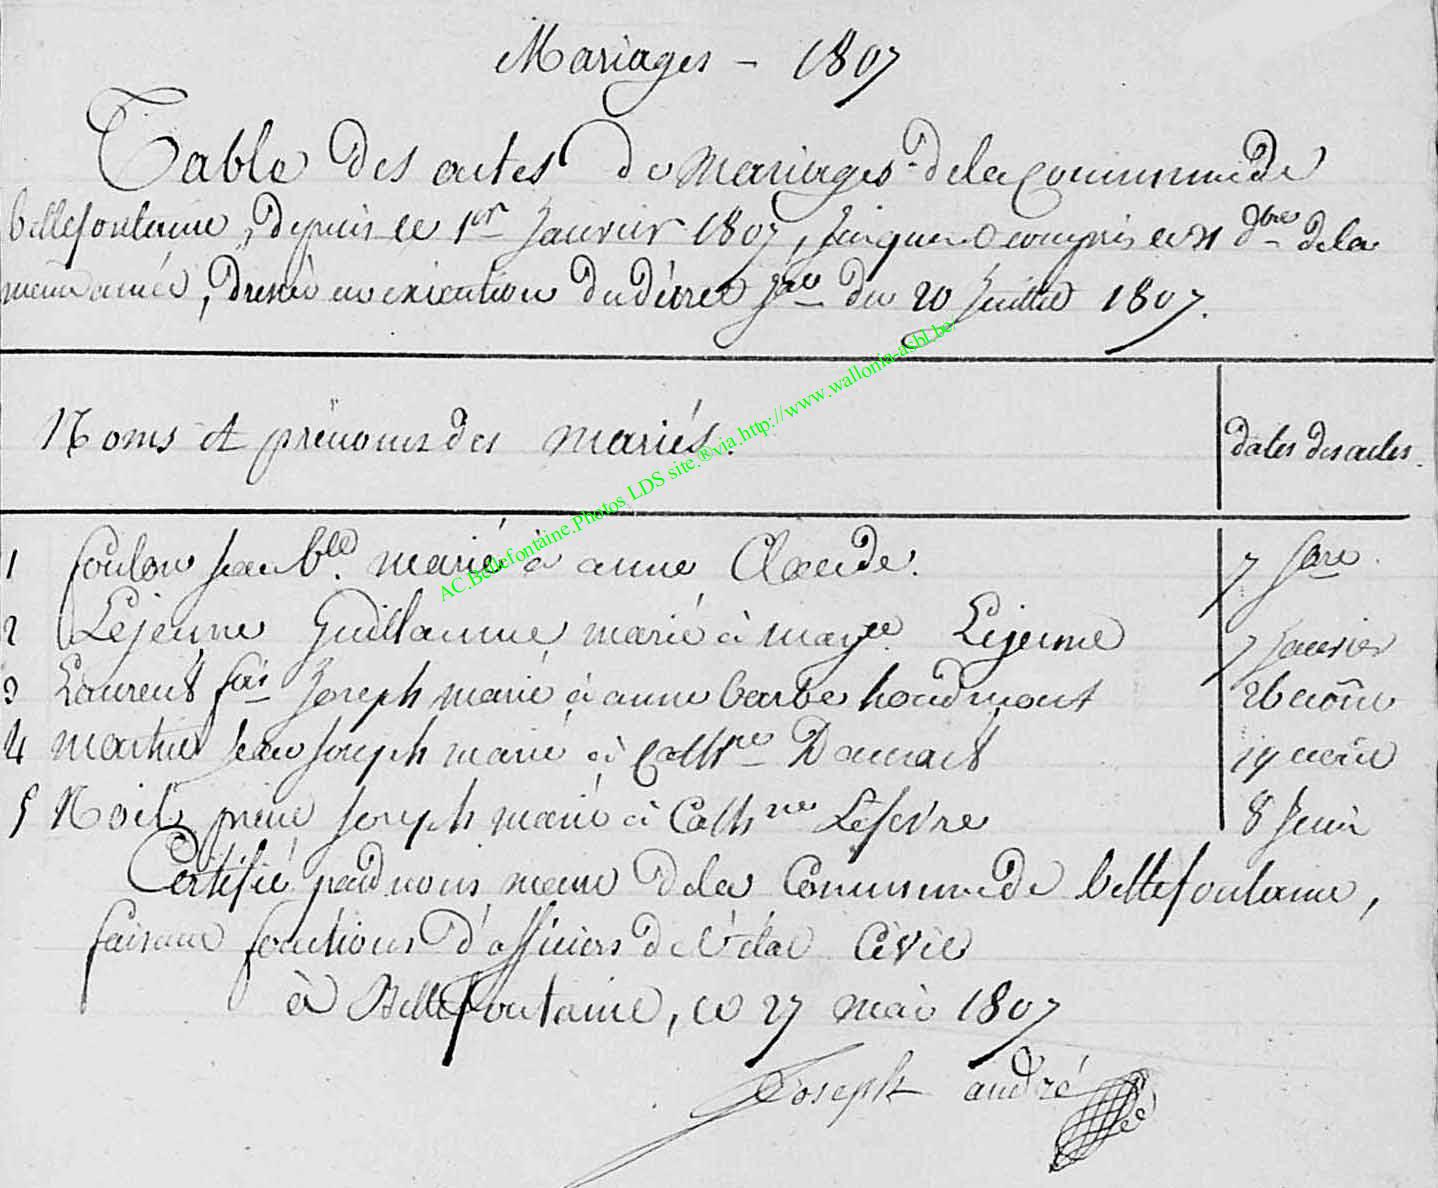 Mariages - 1807
Table des actes de Mariages de la Commune de
bellefontaine, depuis le 1er Janvier 1807, jusques et compris le 31 Xbre de la
meme année, dressée en execution du décret du 20 Juillet 1807.
Noms et prénoms des mariés. dates des actes.
1 foulon jean bte. marié à anne Claude. 7
2 Lejeune Guillaume marié à Lejeune 7 janvier
3 Laurent fois Joseph marié à anne barbe houdmont 26 août
4 martin jean joseph marié à Cathne 19
5 Noël pierre joseph marié à Cathne Lefevre 8 Juin
Certifié par nous maire de la Commune de bellefontaine,
faisant fonctions d'officiers de l'état Civil
à Bellefontaine, le 27 1807
Joseph andré
AC.Bellefontaine.Photos LDS site.®via.http://www.wallonia-asbl.be/